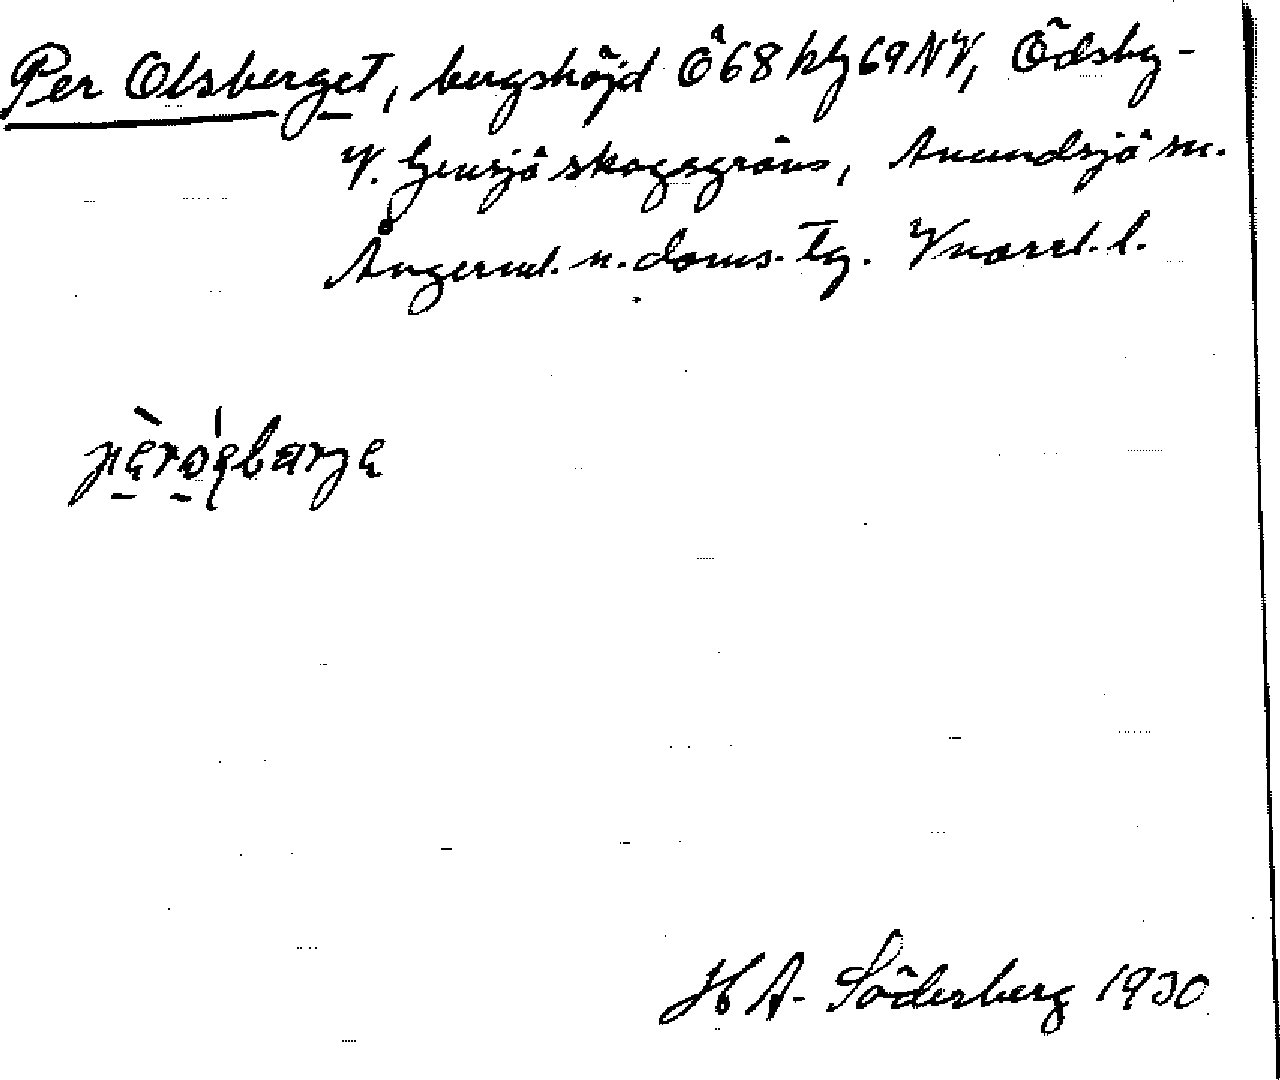 Per Olsberget, bergshöjd Ö68 kbg 69NV, Ödsby-
V. Gensjö skogsgräns, Anundsjö sn.
Ångerml. n. doms. tg. Vnorrl. l.
pèroo̢ḷbarje
H A. Söderberg 1930